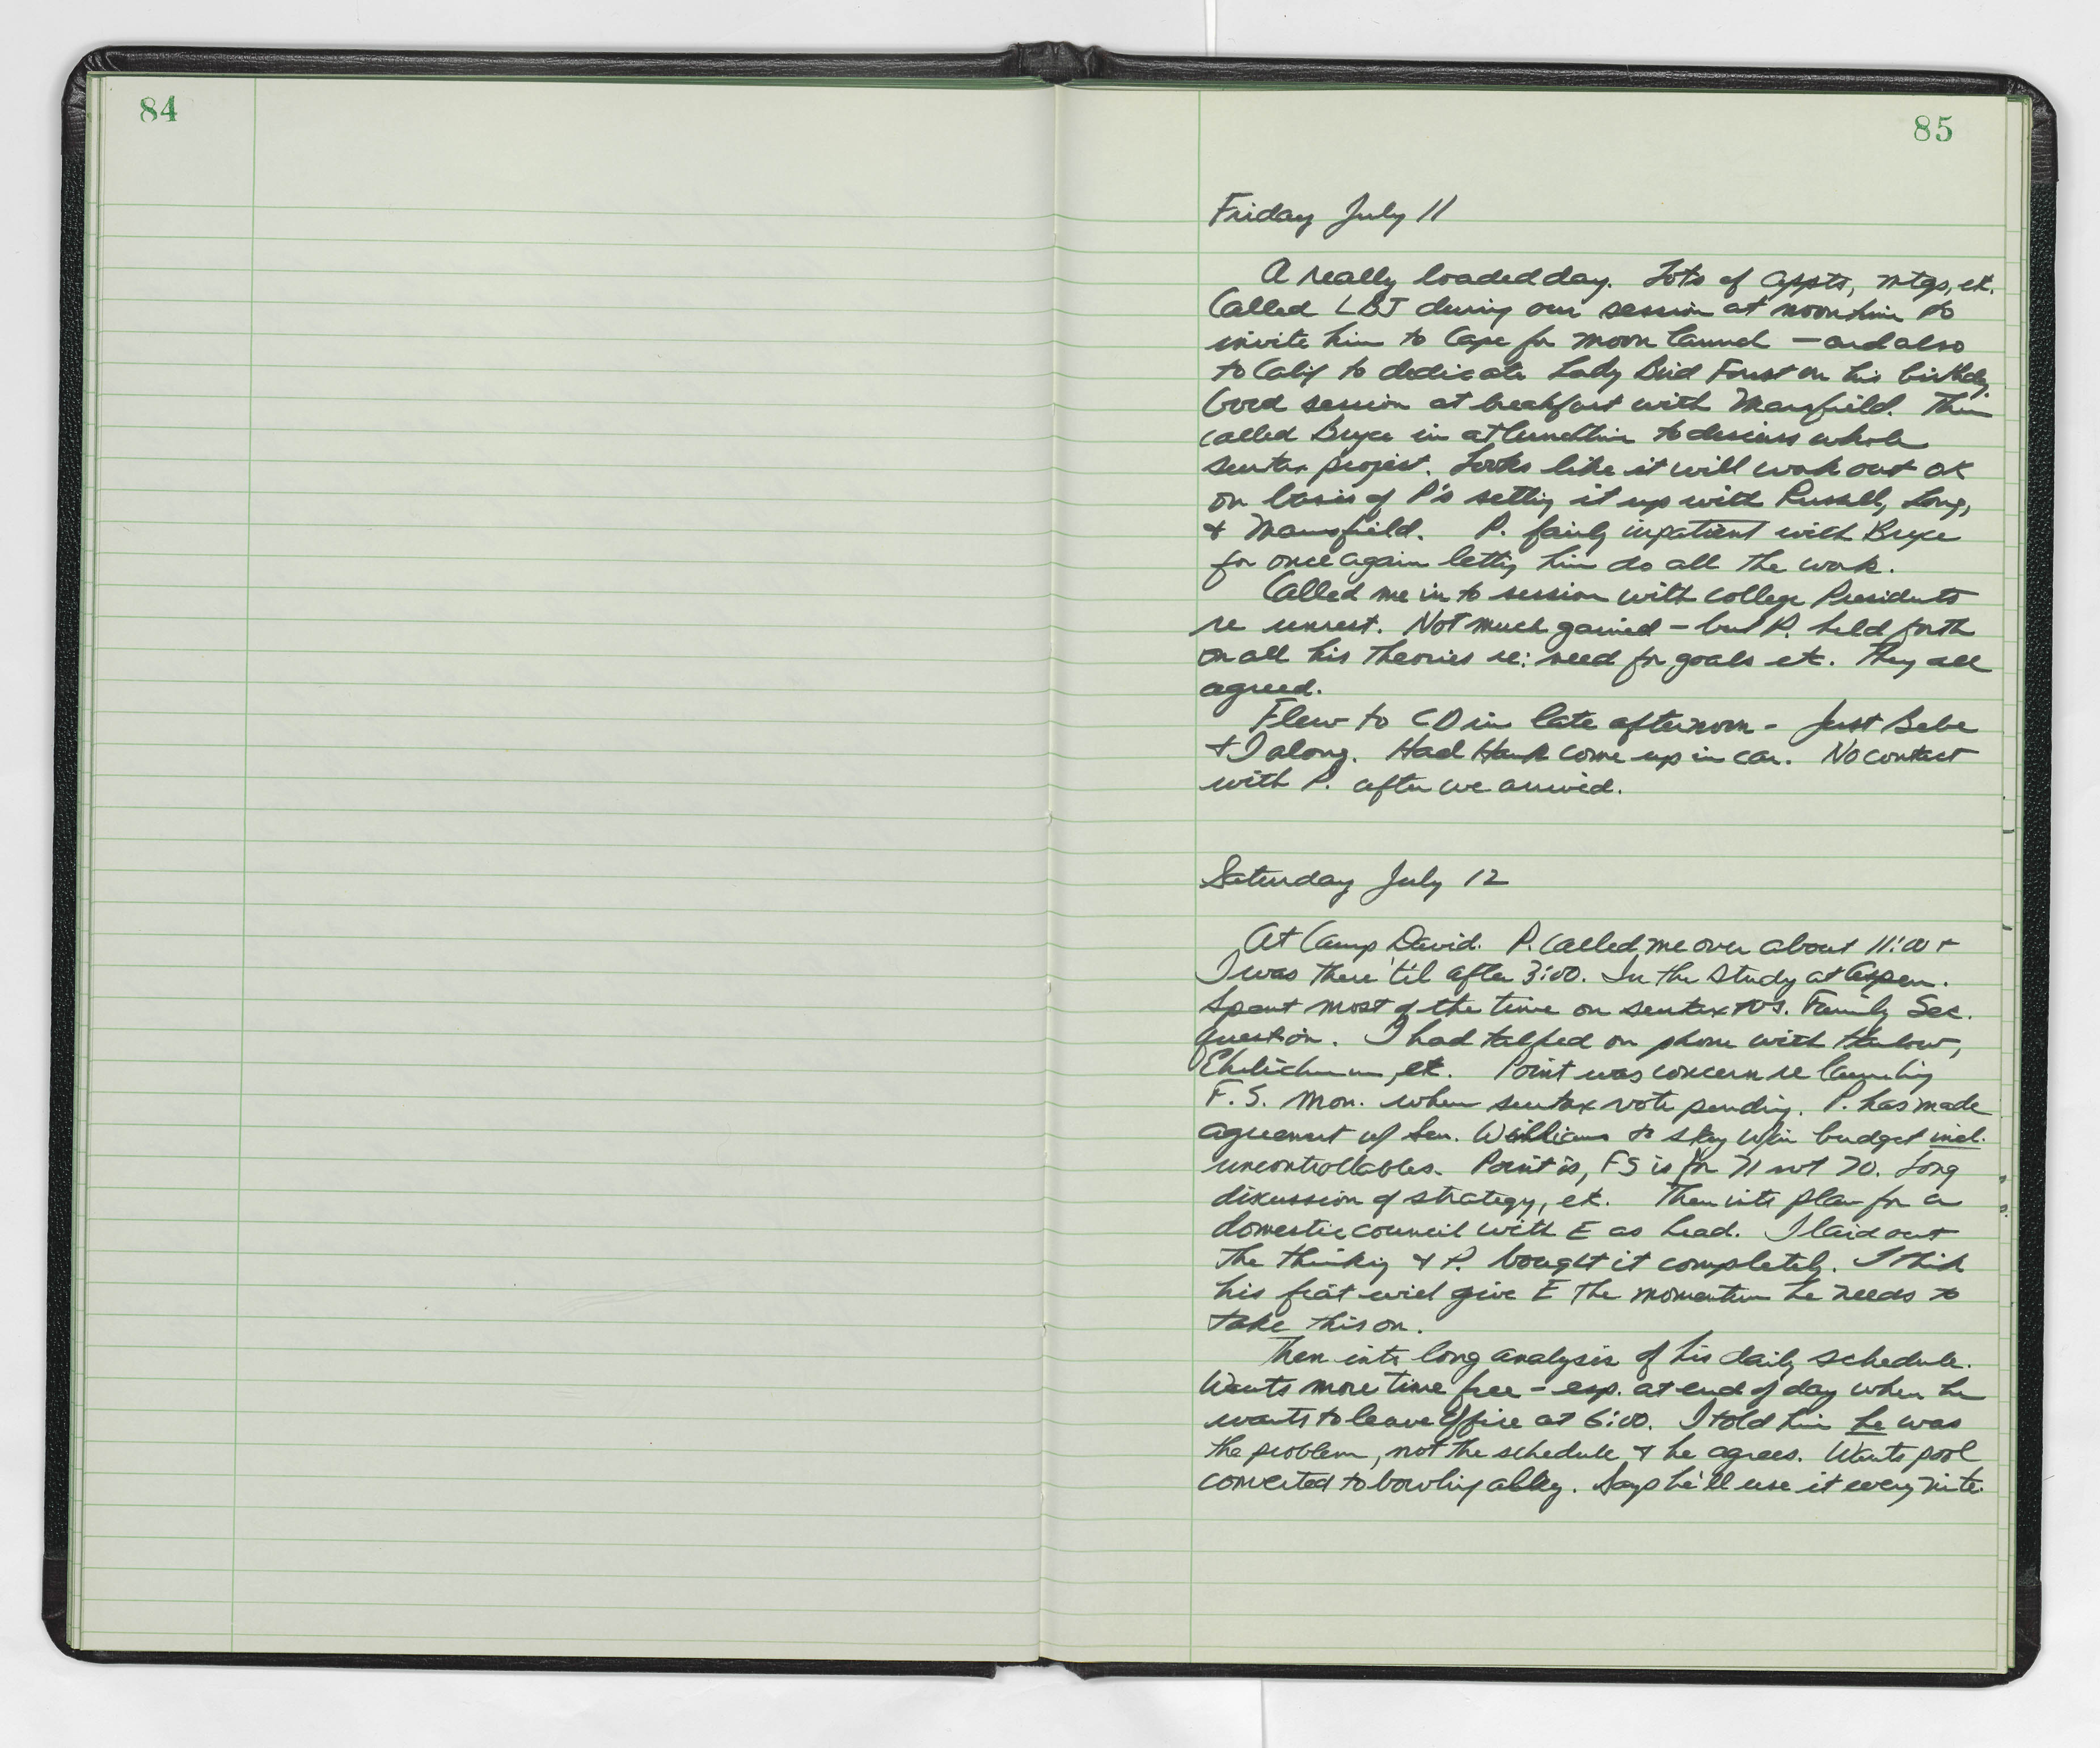 84
85
Friday July 11
A really loaded day. Lots of appts, mtgs, etc.
Called LBJ during our session at noontime to
invite him to Cape for moon launch — and also
to Calif to dedicate Lady Bird Forest on his birthday.
Good session at breakfast with Mansfield. Then
called Bryce in at lunchtime to discuss whole
surtax project. Looks like it will work out ok
on basis of P's setting it up with Russell, Long,
& Mansfield. P. fairly impatient with Bryce
for once again letting him do all the work.
Called me in to session with college Presidents
re unrest. Not much gained - but P. held forth
on all his theories re: need for goals etc. They all
agreed.
Flew to CD in late afternoon - just Bebe
& I along. Had Hank come up in car. No contact
with P. after we arrived.
Saturday July 12
At Camp David. P. called me over about 11:00 &
I was there 'til after 3:00. In the study at Aspen.
Spent most of the time on surtax vs. Family Sec.
question. I had talked on phone with Harlow,
Ehrlichman, etc. Point was concern re launching
F.S. Mon. when surtax vote pending. P. has made
agreement w/ Sen. Williams to stay w/in budget incl.
uncontrollables. Point is, FS is for 71 not 70. Long
discussion of strategy, etc. Then into plan for a
domestic council with E as head. I laid out
the thinking & P. bought it completely. I think
his fiat will give E the momentum he needs to
take this on.
Then into long analysis of his daily schedule.
Wants more time free - esp. at end of day when he
wants to leave office at 6:00. I told him he was
the problem, not the schedule & he agrees. Wants pool
converted to bowling alley. Says he'll use it every nite.